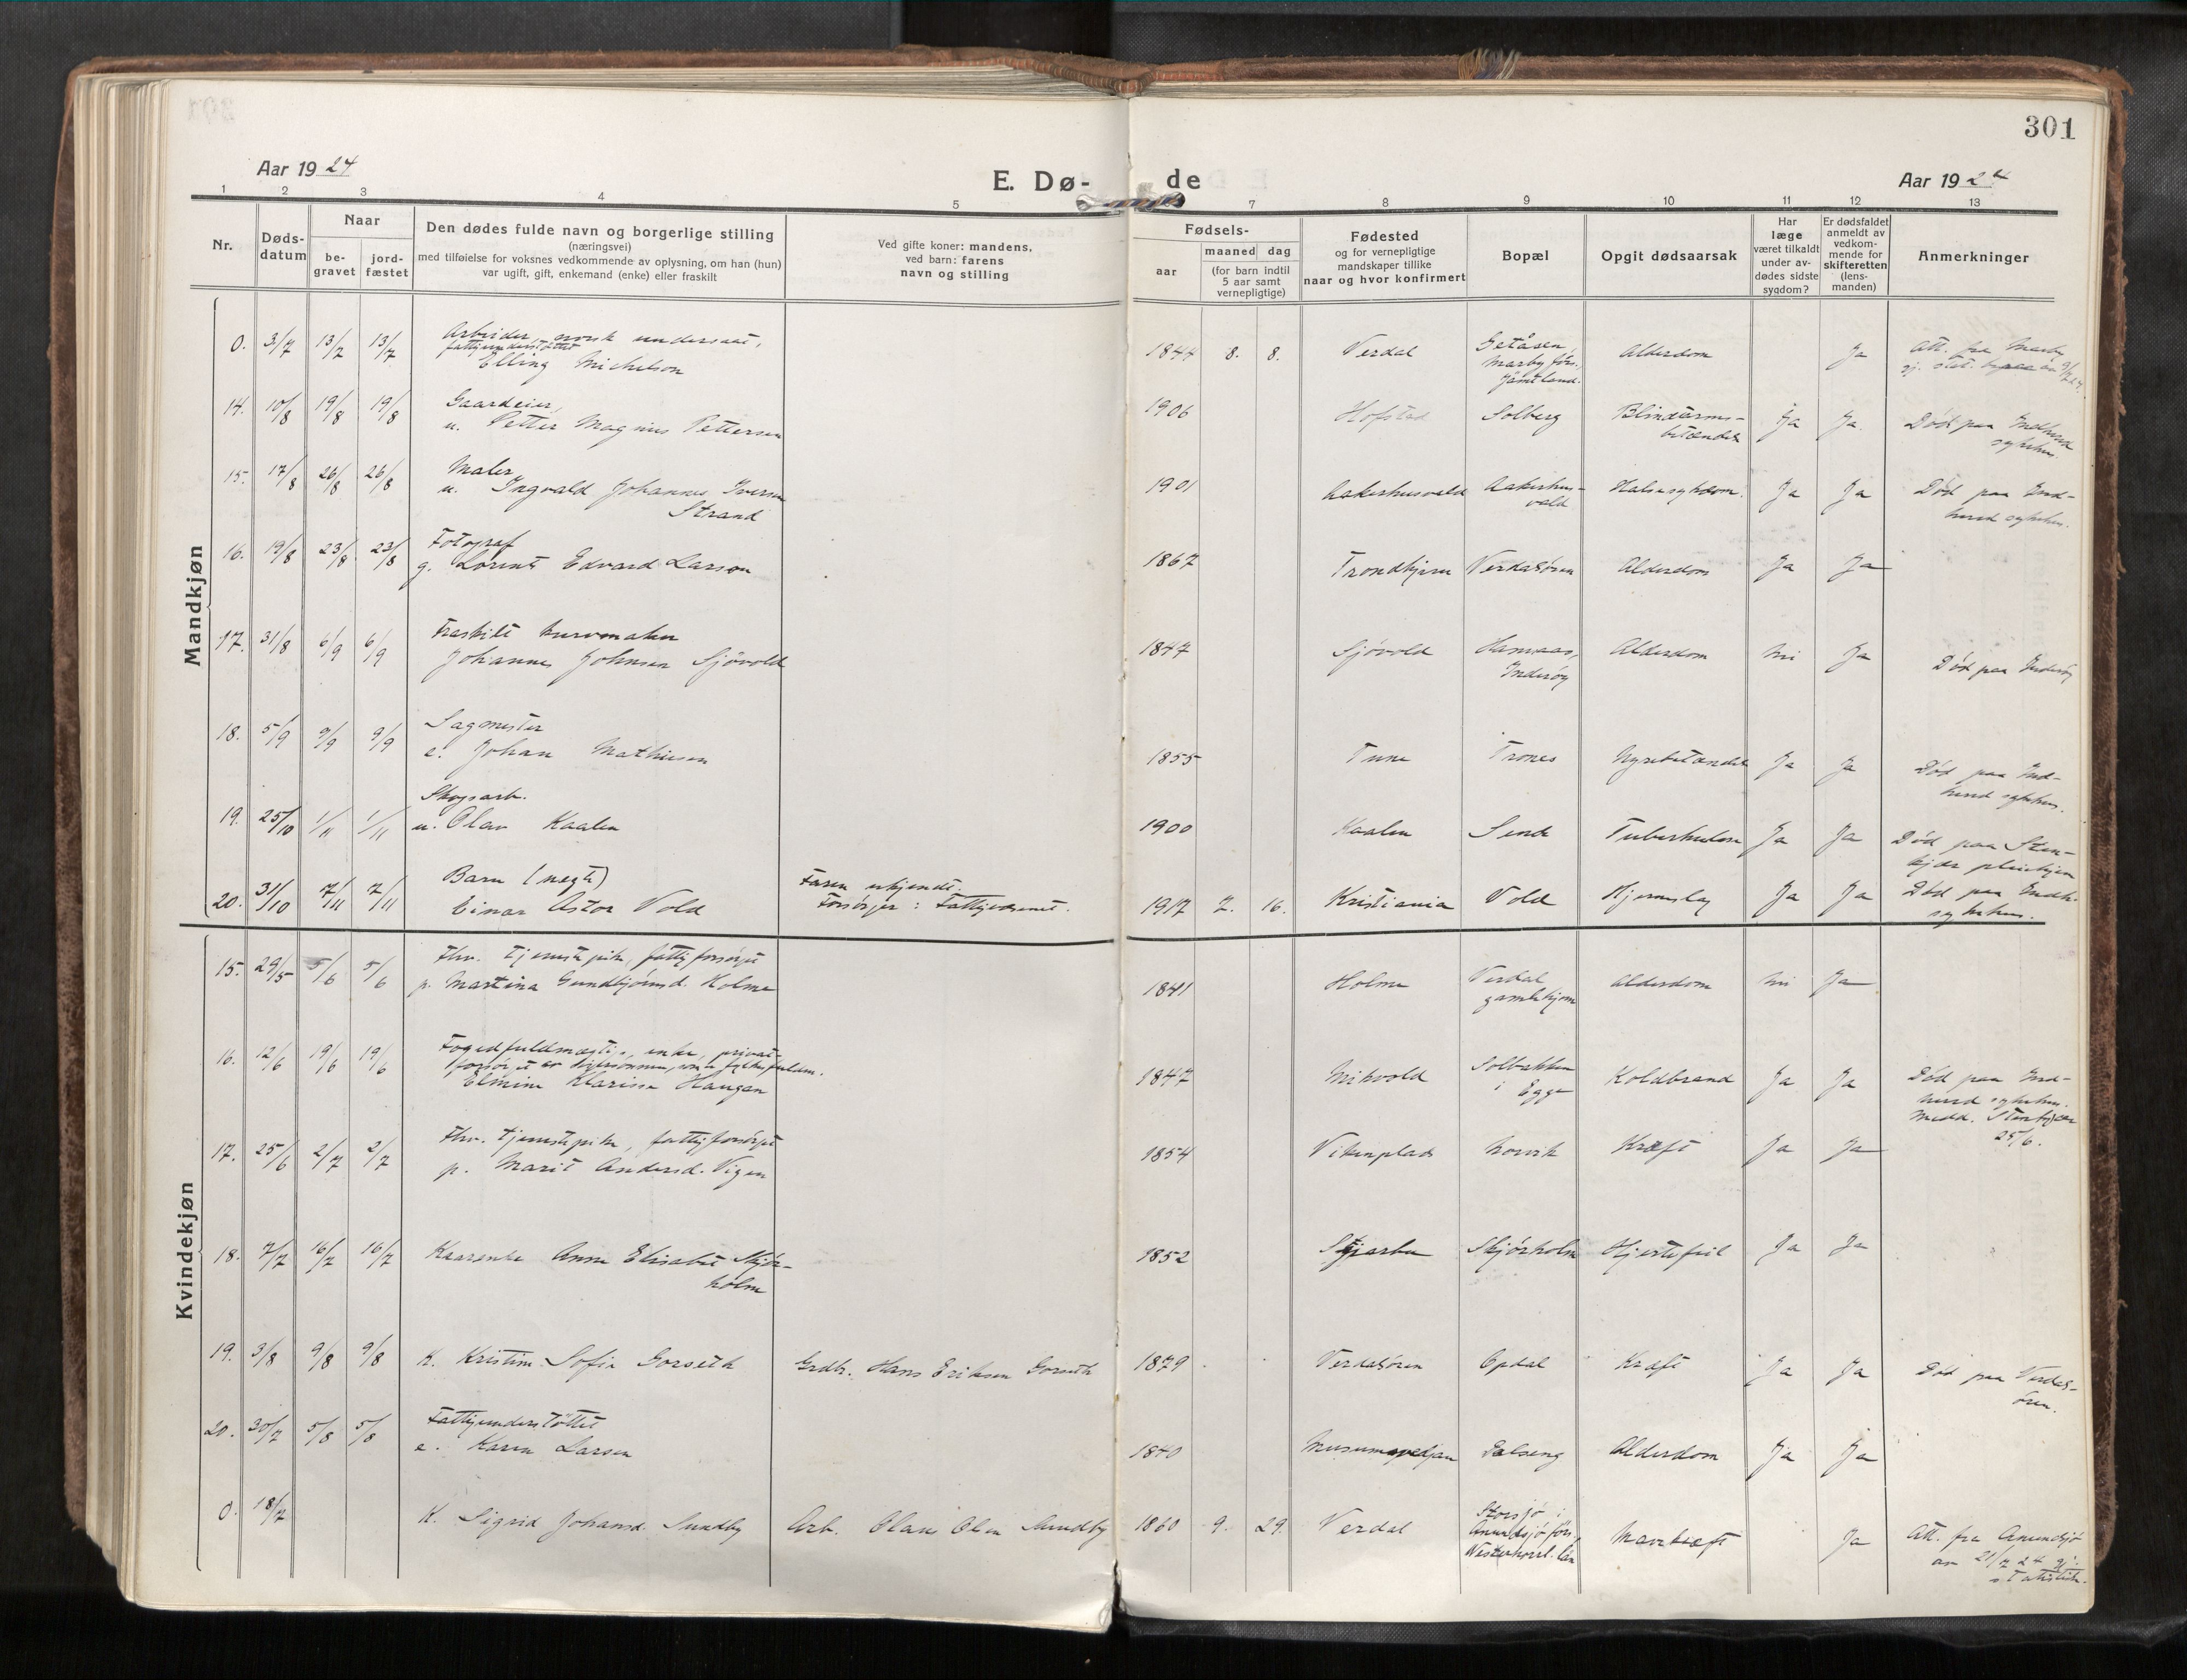 301
Aar 1924
E. Dø-
de
Aar 1924
1 2 3 4 5
7 8 9 10 11 12 13
Nr.
Døds-
datum
Naar
be-
gravet
jord-
fæstet
Den dødes fulde navn og borgerlige stilling
(næringsvei)
med tilføielse for voksnes vedkommende av oplysning, om han (hun)
var ugift, gift, enkemand (enke) eller fraskilt
Ved gifte koner: mandens,
ved barn: farens
navn og stilling
Fødsels-
aar
maaned dag
(for barn indtil
5 aar samt
vernepligtige)
Fødested
og for vernepligtige
mandskaper tillike
naar og hvor konfirmert
Bopæl
Opgit dødsaarsak
Har
læge
været tilkaldt
under av-
dødes sidste
sygdom?
Er dødsfaldet
anmeldt av
vedkom-
mende for
skifteretten
(lens-
manden)
Anmerkninger
Mandkjøn
0. 3/7 13/7 13/7 Arbeider, norsk undersaat,
fattigunderstøttet
Elling Michelsen
1844 8. 8. Verdal Getåsen,
Marby förs.,
Jämtland. Alderdom Ja Att. fra Marby
14. 10/8 19/8 19/8 Gaardeier,
u. Petter Magnus Pettersen
1906 Hofstad Solberg Blindtarms-
betændels Ja Ja Død paa Indherred
sykehus.
15. 17/8 26/8 26/8 Maler
u. Ingvald Johannes Iversen
Strand
1901 Aakerhusvald Aakerhus-
vald Halsesykdom. Ja Ja Død paa Ind-
herred sykehus.
16. 19/8 23/8 23/8 Fotograf
g. Lorents Edvard Larsen
1867 Trondhjem Verdalsøren Alderdom Ja Ja
17. 31/8 6/9 6/9 Fraskilt kurvmaker
Johannes Johnsen Sjövold
1847 Sjövold Hamnaas,
Inderøy Alderdom nei Ja Død paa Inderøy
18. 5/9 9/9 9/9 Sagmester
e. Johan Mathiesen
1855 Tune Trones Nyrebetændels Ja Ja Død paa Ind-
herred sykehus.
19. 25/10 1/11 1/11 Skogsarb.
u. Olav Kaalen
1900 Kaalen Sende Tuberkulose Ja Ja Død paa Sten-
kjær pleiehjem
20. 31/10 7/11 7/11 Barn (uegte)
Einar Astor Vold
Faren ukjendt.
Forsörger: Fattigvæsenet.
1917 7. 16. Kristiania Vold Hjerneslag Ja Ja Død paa Indh.
sykehus.
Kvindekjøn
15. 29/5 5/6 5/6 Fhv. tjenestepike, fattigforsörget
p. Martina Gundbjörnsd. Holme
1841 Holme Verdal
gamlehjem Alderdom nei Ja
16. 12/6 19/6 19/6 Fogedfuldmægtig, enke, privat-
Elmine Klarissa Haugan
1847 Mikvold Solbakken
i Egge Koldbrand Ja Ja Død paa Ind-
herred sykehus.
Medd. Stenkjær
25/6.
17. 25/6 2/7 2/7 Fhv. tjenestepike, fattigforsörget
p. Marit Andersd. Vigen
1854 Vikenplads Norvik Kræft Ja Ja
18. 7/7 16/7 16/7 Kaarenke Anne Elisabet Skjör-
holm
1852 Skjörholm Hjertefeil Ja Ja
19. 3/8 9/8 9/8 K. Kristine Sofie Gorseth Grdbr. Hans Eriksen Gorseth
1879 Verdalsören Opdal Kræft Ja Ja Död paa Verdals-
ören.
20. 30/7 5/8 5/8 Fattigunderstöttet
e. Karen Larsen
1840 Dalseng Alderdom Ja Ja
0. 18/7 K. Sigrid Johansd. Sundby Arb. Olau Olsen Sundby
1860 9. 29. Verdal Storsjö i
Anundsjö förs.
Westernorrl. län Mavekræft Ja Att. fra Anundsjö
av 21/7 24 gj.
statistik.